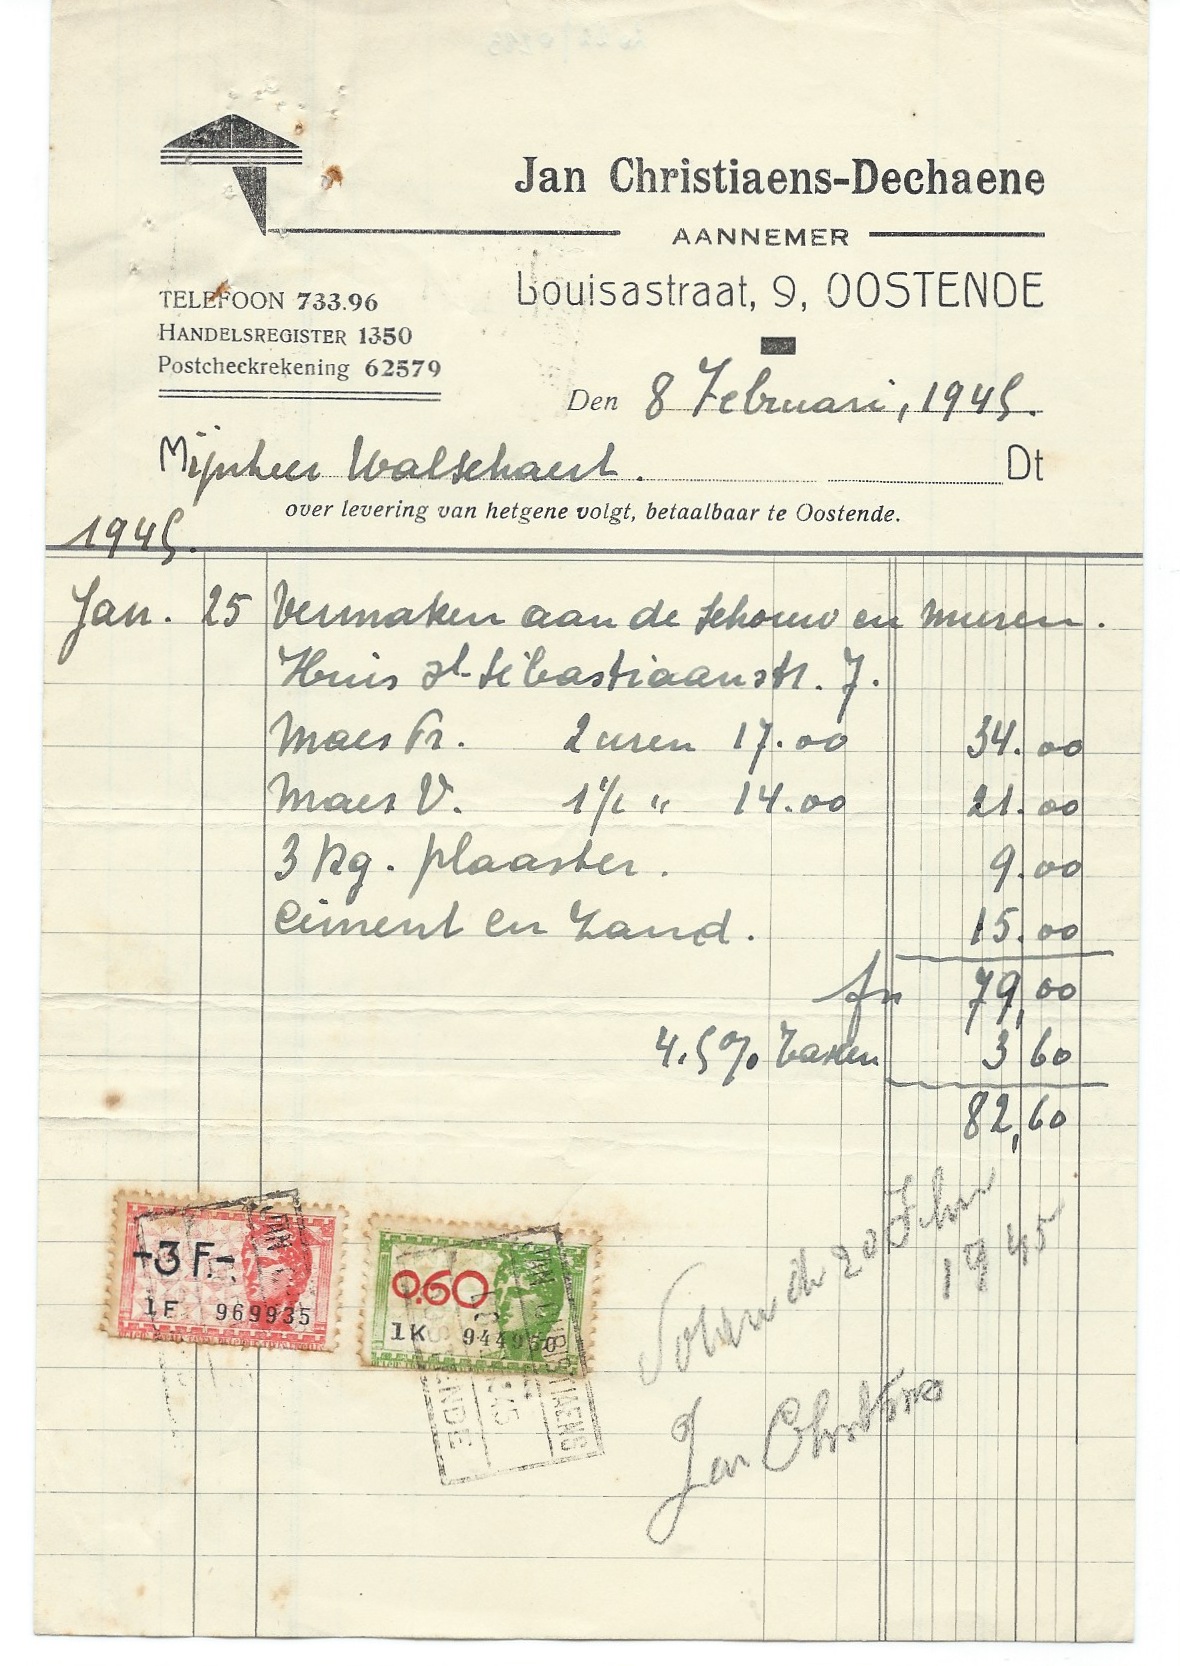 Jan Christiaens-Dechaene
AANNEMER
Louisastraat, 9, OOSTENDE
TELEFOON 733.96
HANDELSREGISTER 1350
Postcheckrekening 62579
Den 8 Februari, 1945.
Mijnheer Walschaert. Dt
over levering van hetgene volgt, betaalbaar te Oostende.
1945.
Jan. 25 Vermaken aan de schouw en muren.
Huis St-Sebastiaanstr. 7.
Maes Fr. 2 uren 17.00 34.00
Maes V. 1½ " 14.00 21.00
3 kg. plaaster. 9.00
Ciment en Zand. 15.00
fr 79,00
4.5% Taxen 3 60
82,60
-3 F.-
1F 969935
0.60
1K 944050
JAN CHRISTIAENS
OOSTENDE
Voldaan de 20 Febr
1945
Jan Christiaens